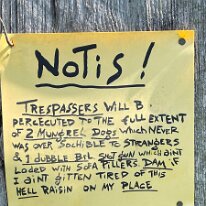 NOTIS!
TRESPASSERS WILL B
PERCECUTED TO THE FULL EXTENT
OF 2 MUNGREL DOGS WHICH NEVER
WAS OVER SOCHIBLE TO STRANGERS
& 1 DUBBLE BRL SHT GUN WHICH AINT
LODED WITH SOFA PILLERS DAM if
I AINT GITTEN TIRED OF THIS
HELL RAISIN ON MY PLACE